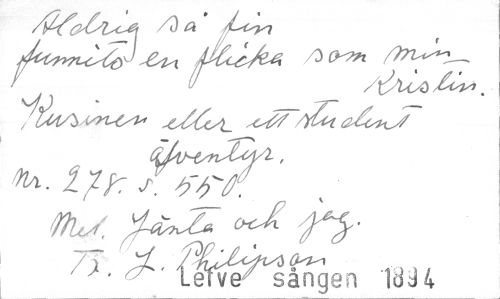 Aldrig så fin
funnits en flicka som min
Kristin.
Kusinen eller ett student
äfventyr.
Nr. 278. s. 550.
Mel. Jänta och jag.
Tr. L. Philipson
Lefve sången 1894